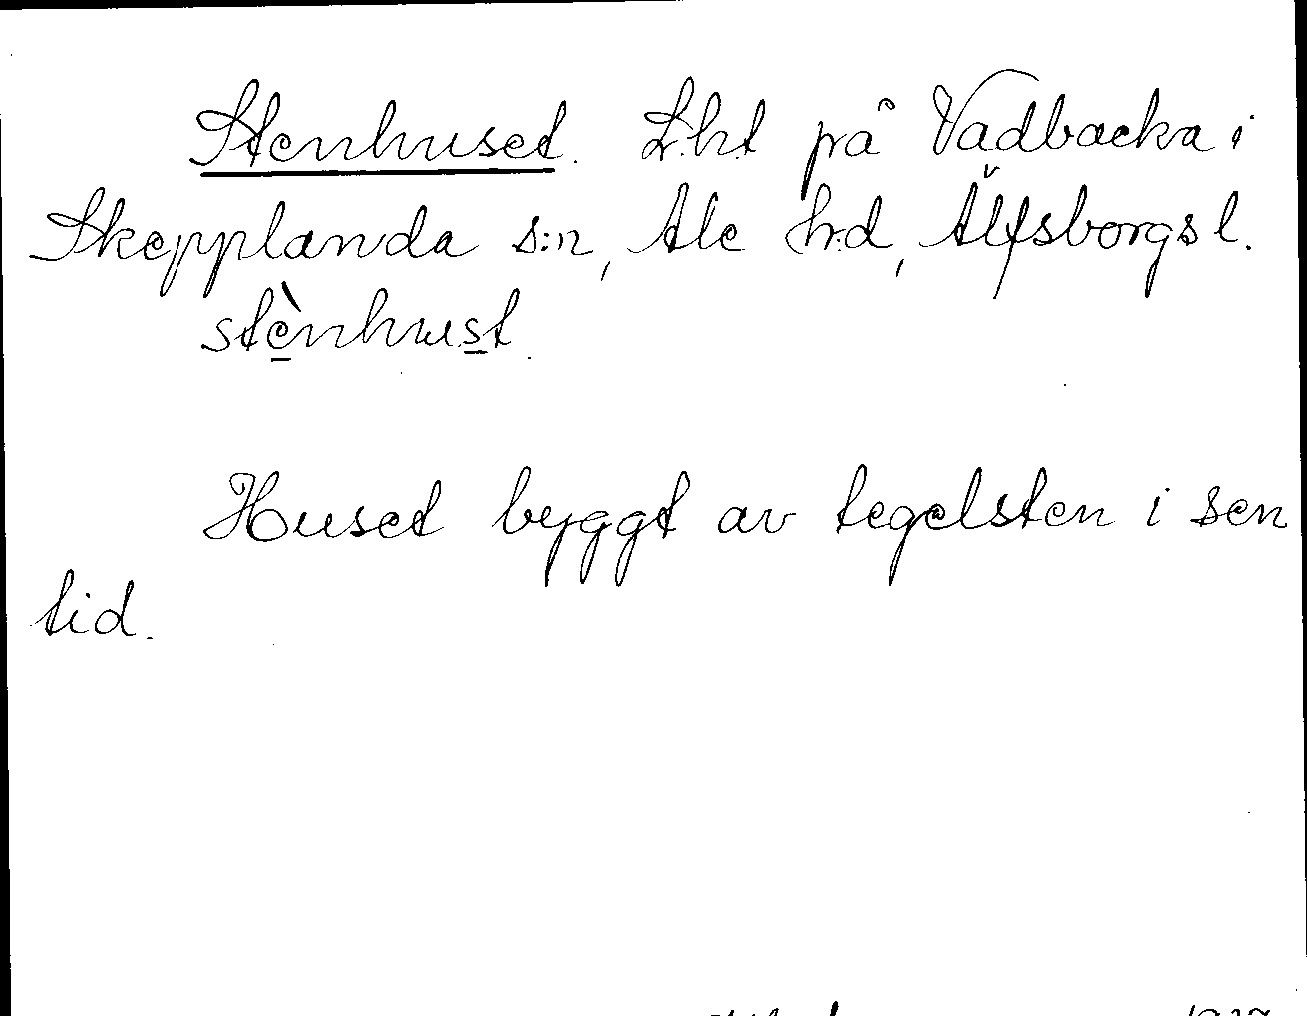 Stenhuset. L.ht på Vadbacka i
Skepplanda s:n, Ale h:d, Älfsborgs l.
stènhust.
Huset byggt av tegelsten i sen
tid.